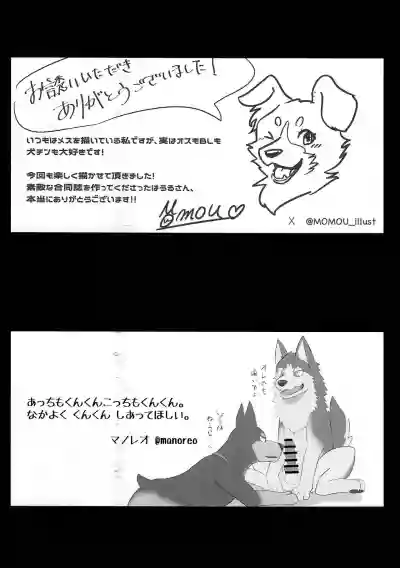 お誘いいただき
ありがとうございました!
いつもはメスを描いている私ですが、実はオスもBLも
犬チンも大好きです!
今回も楽しく描かせて頂きました!
素敵な合同誌を作ってくださったはうるさん、
本当にありがとうございます!!
MOMOU♡
X @MOMOU_illust
あっちもくんくんこっちもくんくん。
なかよく くんくん しあってほしい。
マノレオ @manoreo